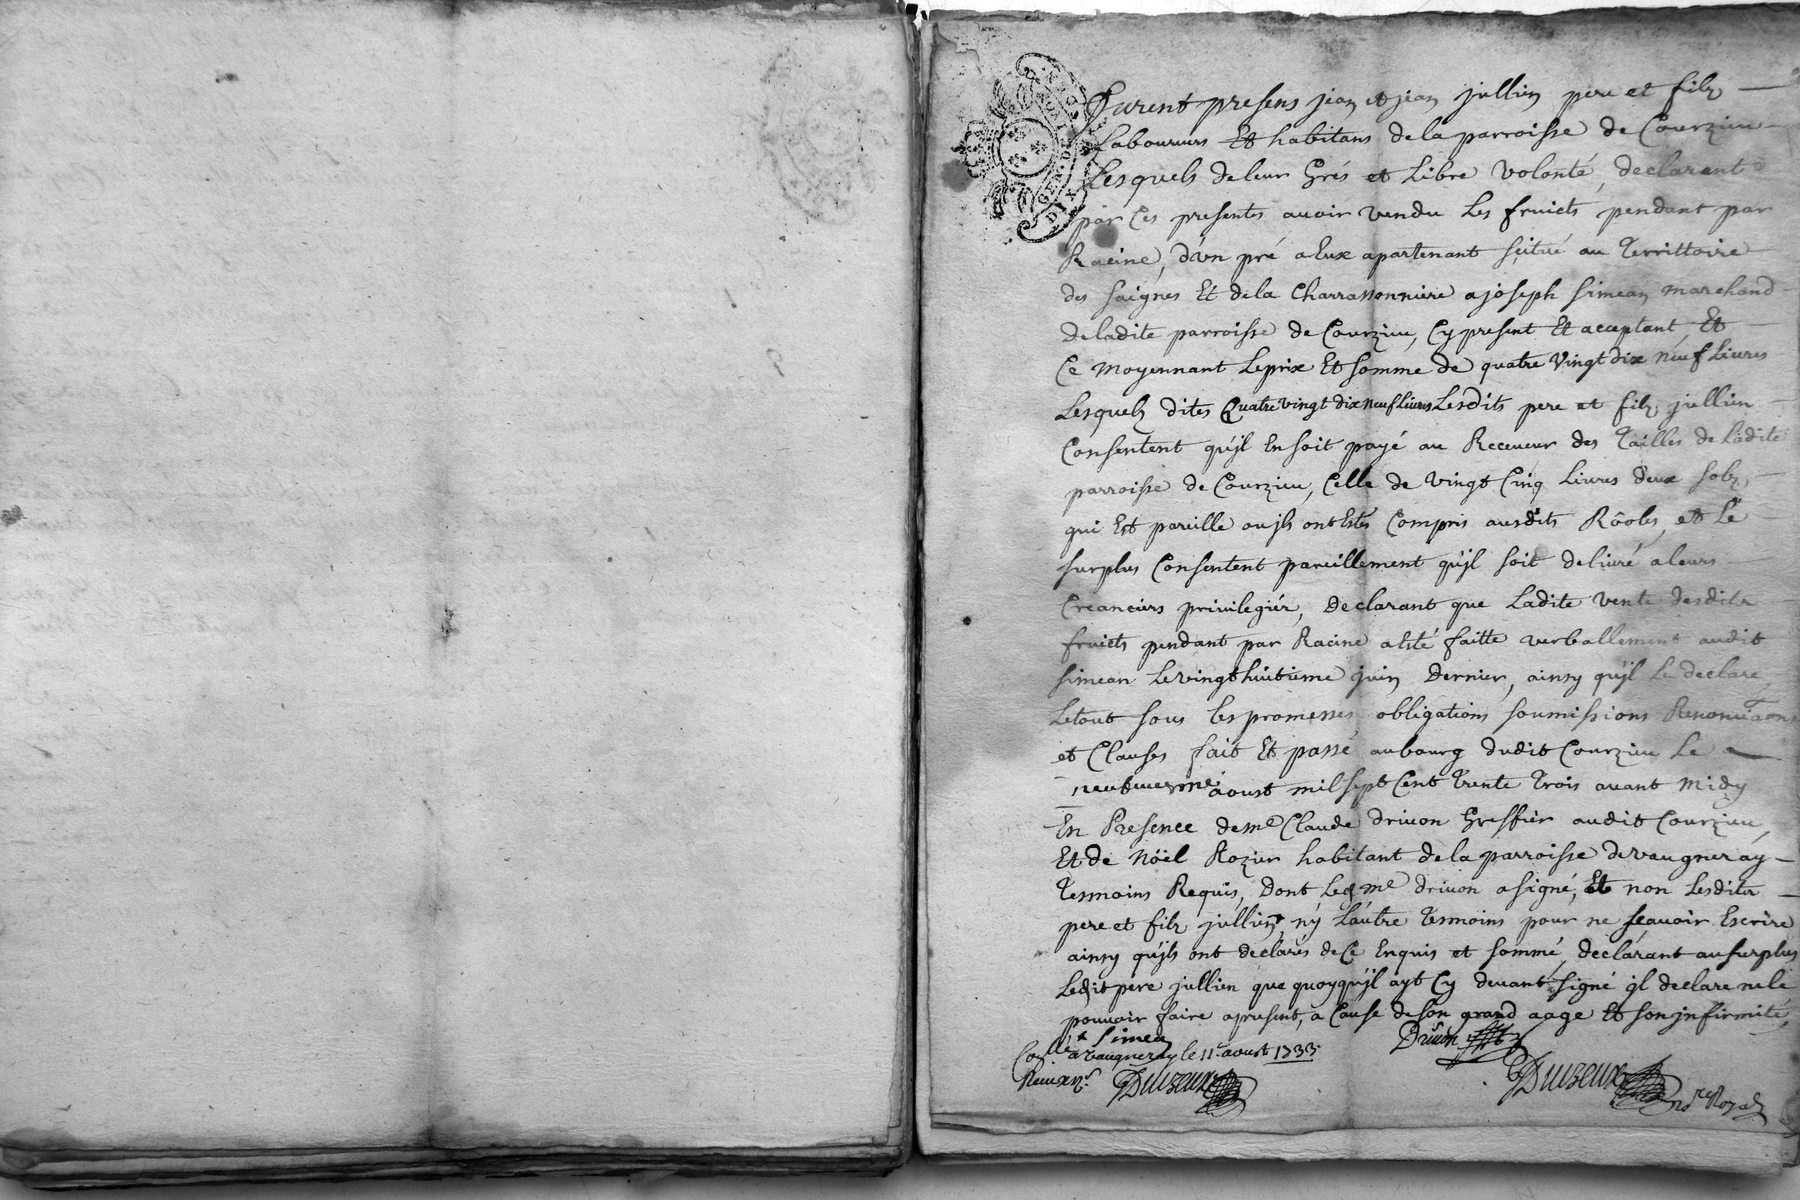 Furent presens jean et jean jullien pere et filz
Laboureurs Et habitans de la parroisse de Courzieu
Lesquels de leur Grés et Libre volonté, declarent
par Ces presentes auoir vendu Les fruicts pendant par
Racine, d'vn pré a Eux apartenant sçitué au Territtoire
des saignes Et de la Charrassonniere a joseph simean marchand
de ladite parroisse de Courzieu, Cy present Et acceptant, Et
Ce moyennant Le prix Et somme de quatre vingt dix neuf Liures
Lesquels dites Quatre vingt dix neuf Liures Lesdits pere et filz jullien
Consentent qu'jl En soit payé au Receueur des Tailles de Ladite
parroisse de Courzieu, Celle de vingt Cinq Liures deux solz,
qui Est pareille ou jls ont Estés Compris ausdits Rôoles, et Le
surplus Consentent pareillement qu'jl soit deliuré a leurs
Creanciers priuilegiér, declarant que Ladite vente desdits
fruicts pendant par Racine a Esté faitte verballement audit
simean Le vingt huitieme juin dernier, ainsy qu'jl Le declare,
Le tout sous les promesses obligations soumissions Renonciaons
et Clauses fait Et passé au bourg dudit Courzieu Le
neufuieme aoust mil sept Cent Trente Trois auant midy
En Presence de me Claude driuon Greffier audit Courzieu,
Et de Nöel Rozier habitant de la parroisse de vaugneray
Tesmoins Requis, Dont Led me driuon a signé, Et non Lesdits
pere et filz jullien, ny L'autre Tesmoins pour ne sçauoir Escrire
ainsy qu'jls ont declarés de Ce Enquis et sommé, declarant au surplus
Ledit pere jullien que quoyqu'jl ayt Cy deuant signé jl declare ne le
pouuoir faire apresent, a Cause de son grand aage Et son jnfirmité,
simea Driuon
a vaugneray le 11e aoust 1733.
Duizeux Duizeux
nore Royal